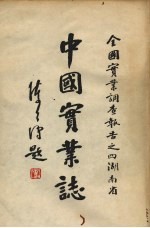 全國實業調查報告之四湖南省
中國實業誌
題